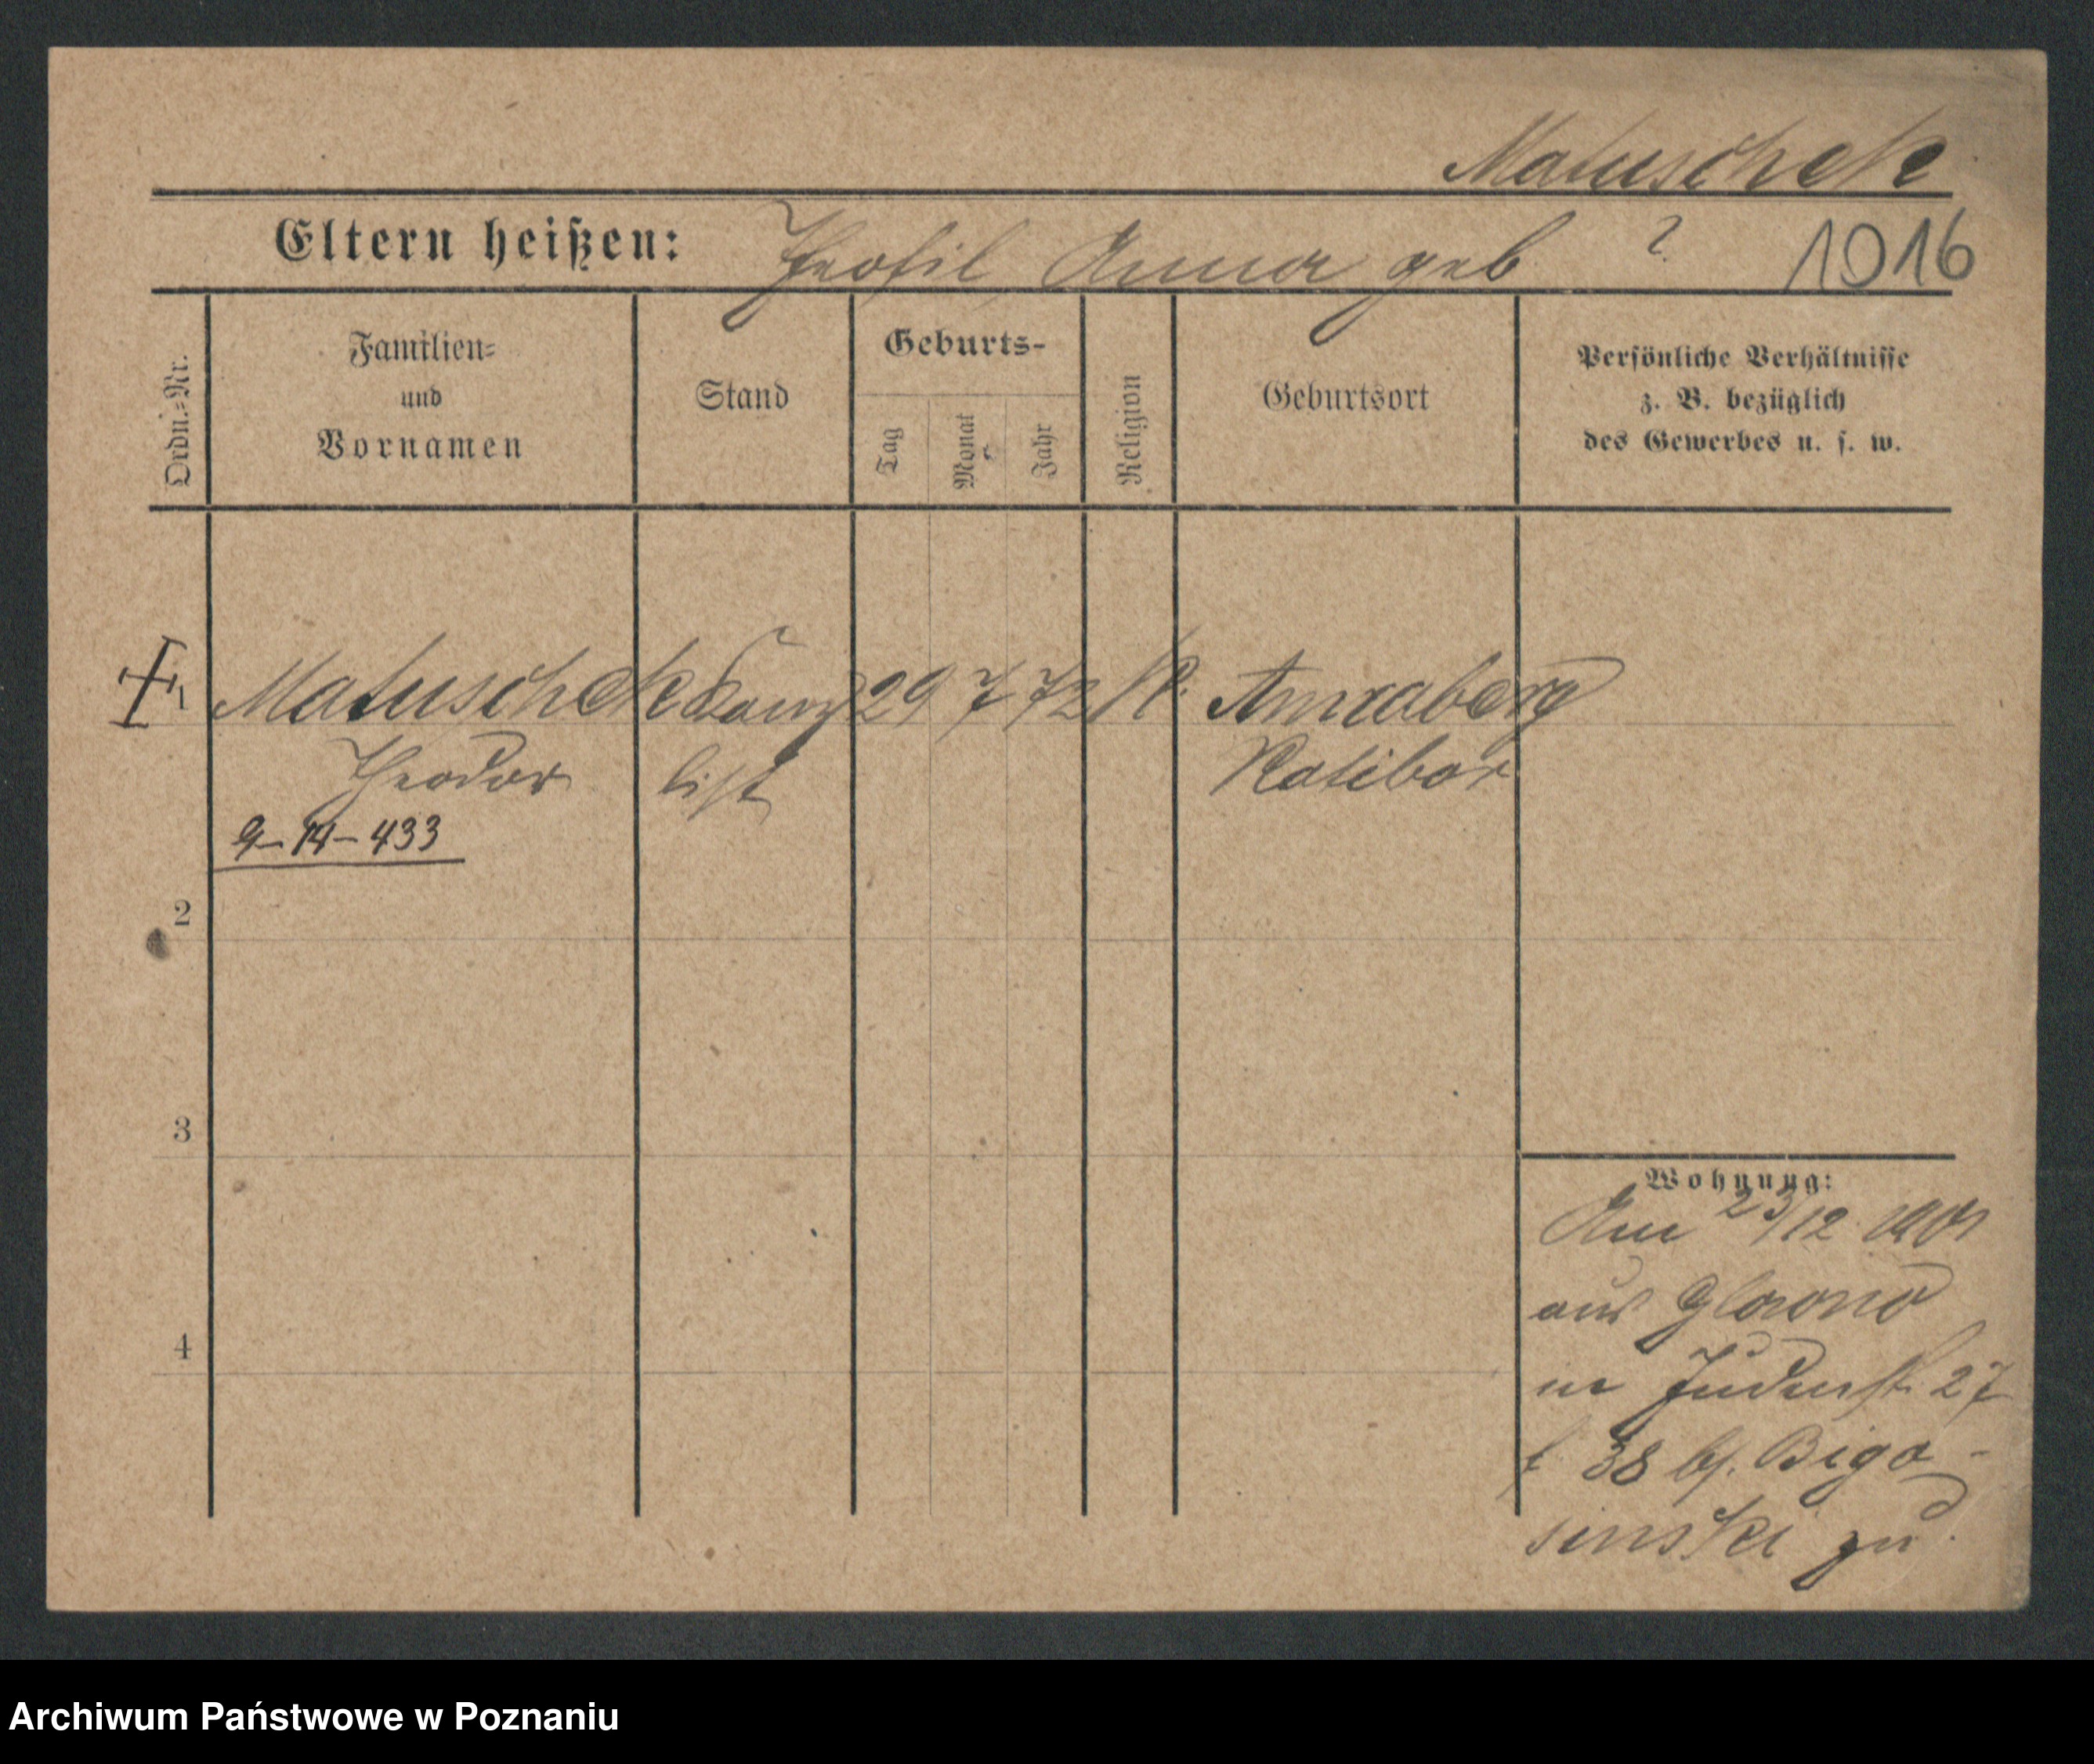 Matuschek
Eltern heißen: Theofil, Anna geb ? 1016
Ordn.=Nr.
Familien=
und
Vornamen
Stand
Geburts-
Tag
Monat
Jahr
Religion
Geburtsort
Persönliche Verhältnisse
z. B. bezüglich
des Gewerbes u. s. w.
1 Matuschek Kanz 29 7 72 K. Annaberg
Theodor list Ratibor
9-14-433
2
3
4
Wohnung:
Am 23/12 1901
aus
in Judenstr. 27
b/. Bigo-
sinski zu
Archiwum Państwowe w Poznaniu